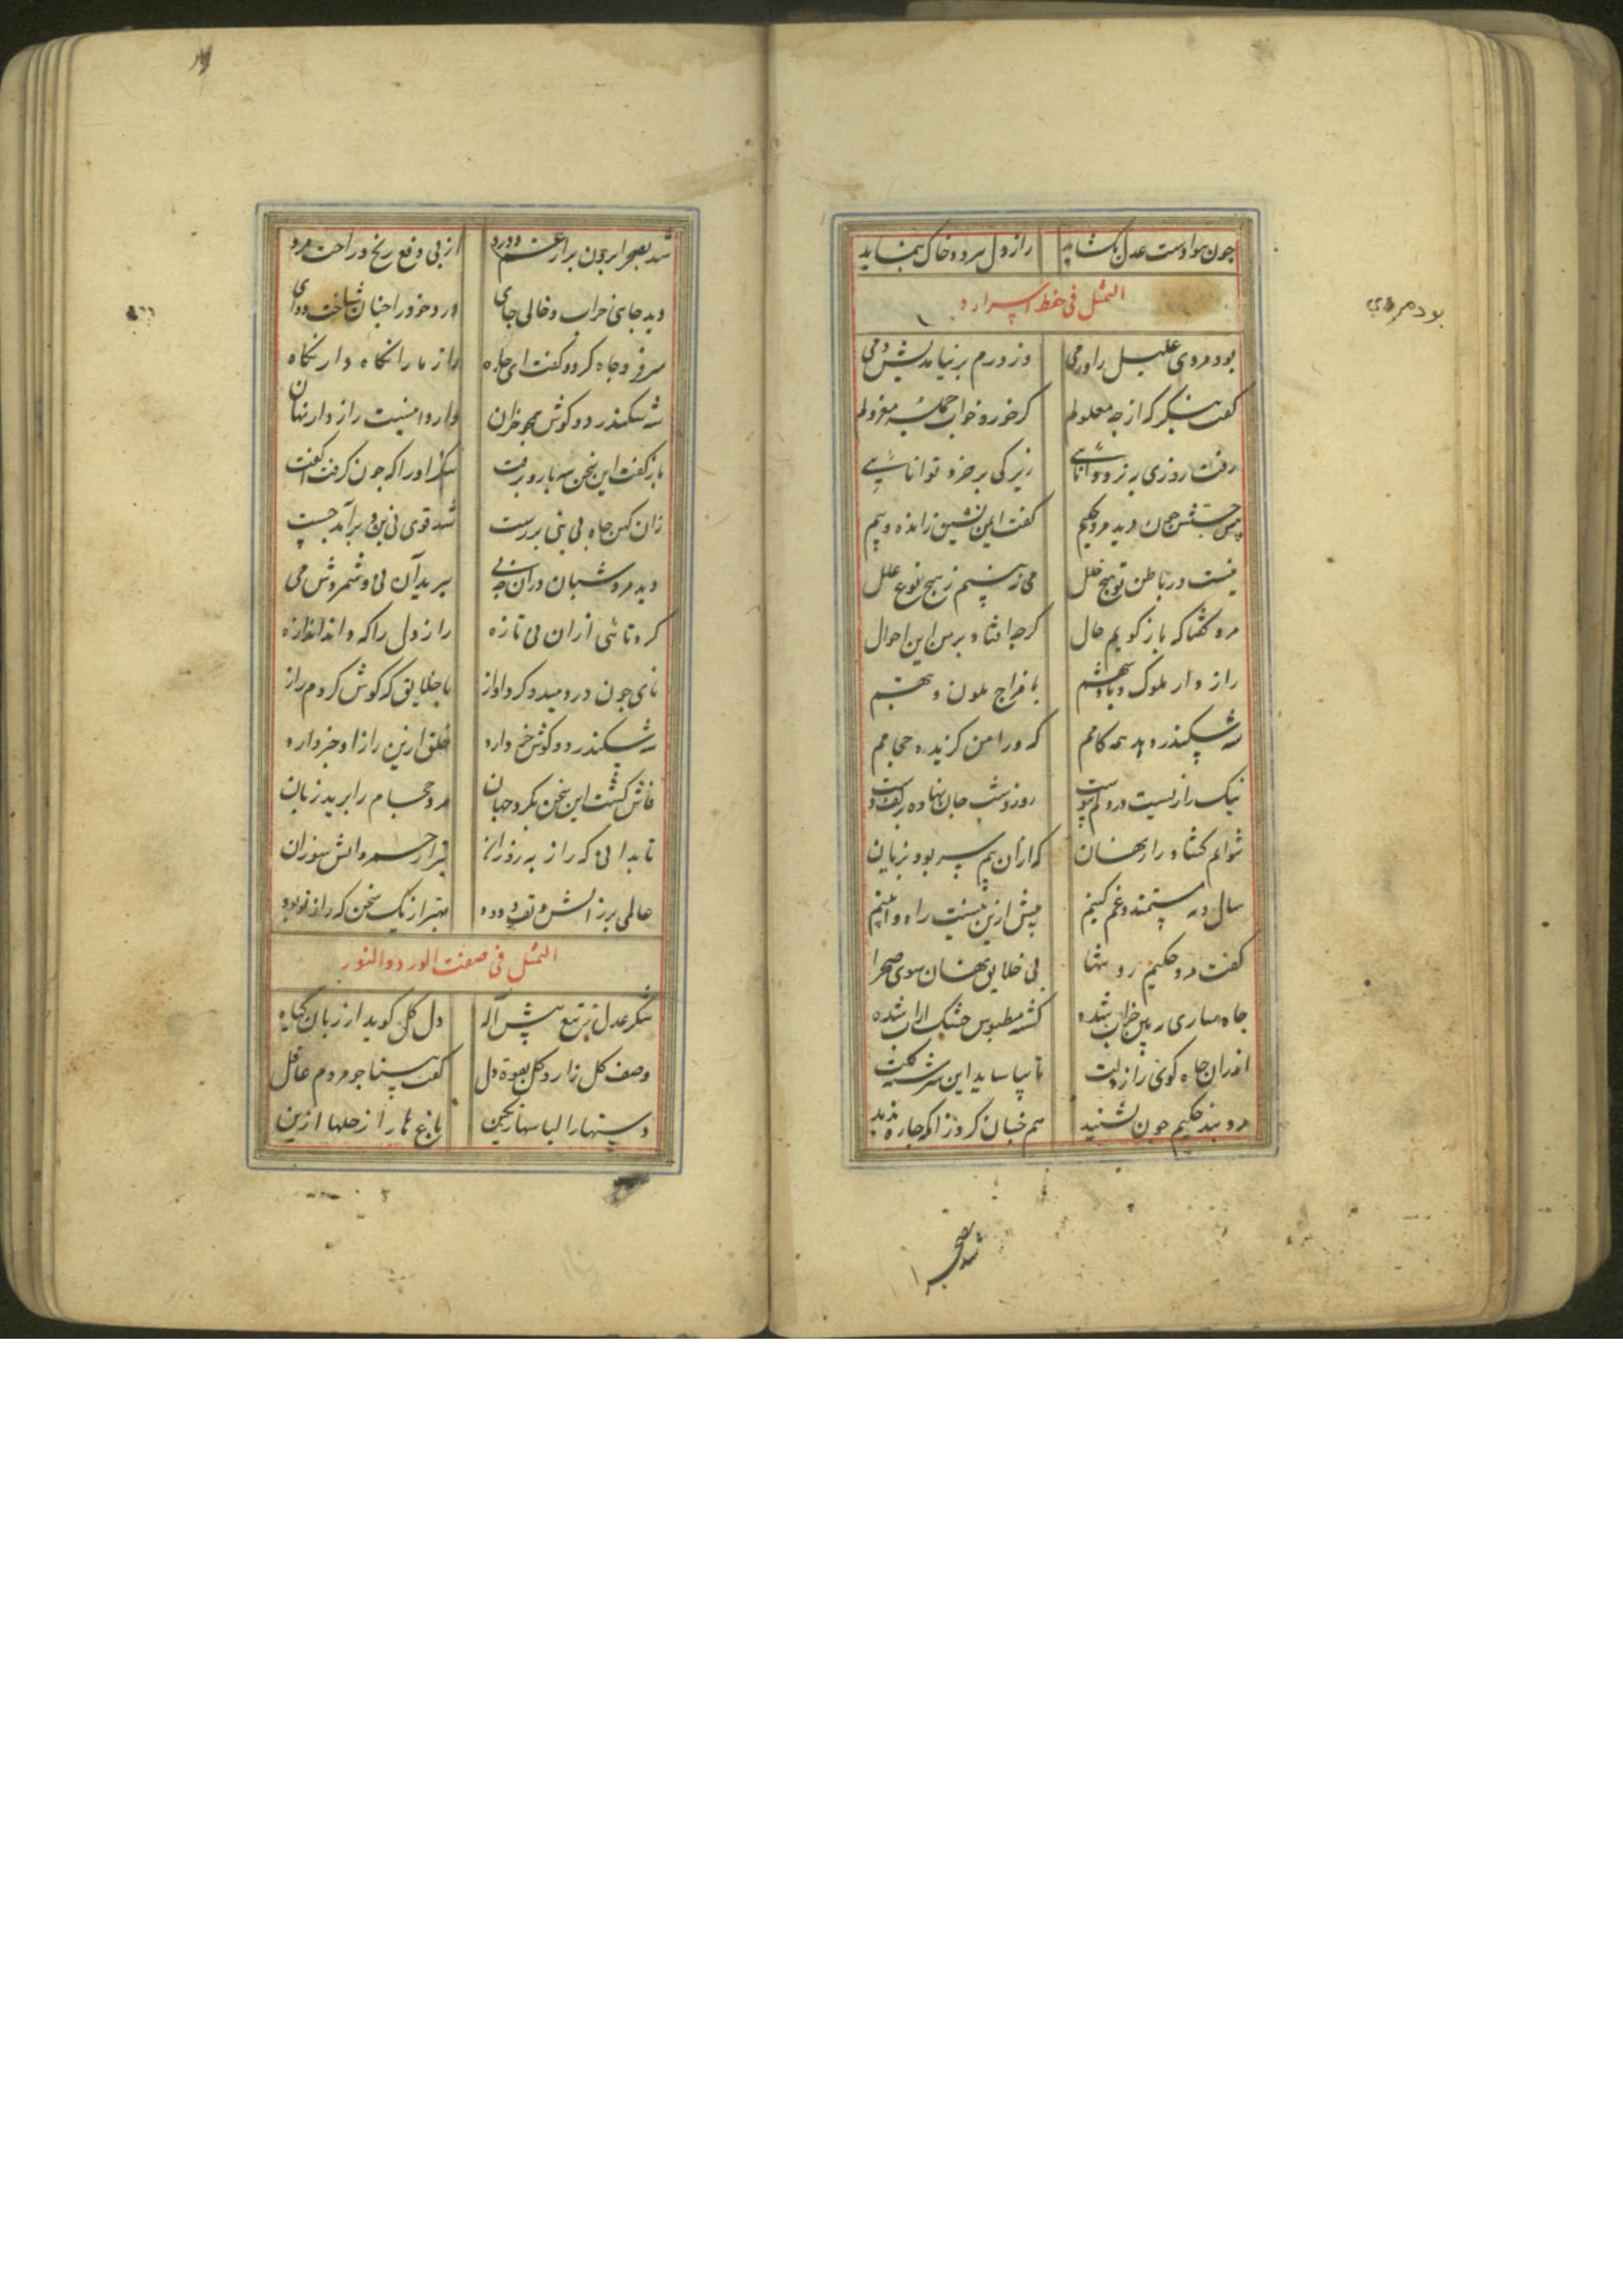 چون هوا دست عدل بگشاید راز دل مرده خاک بنماید
التمثل فی حفظ اسراره
بود مردی علیل را ورمی وز ورم برنیامدیش دمی
بود مردی
گفت بنگر که از چه معلولم کز خور و خواب جمله معزولم
رفت روزی بنزد دانائی زیرکی پر خرد توانائی
پس چون دید مرد حکیم گفت ایمن نشین ز انده و بیم
نیست در باطن تو هیچ خلل می نبینم ز هیچ نوع علل
مرد گفتا که باز گویم حال کز چه افتاد بر من این احوال
رازدار ملوک و پادشهم با مزاج ملون و تبهم
شه سکندر دهد همه کامم که ورا من گزیده حجامم
نیک رازیست در دلم پیوست روز و شب جان نهاده بر کف دست
نتوانم گشاد راز نهان که از آن بیم سر بود بزیان
سال و مه مستمند و غمگینم بیش ازین نیست راه و آیینم
گفت مرد حکیم رو تنها بی خلایق نهان سوی صحرا
چاه ساری ببین خراب شده گشته مطموس خشک از آب شده
اندران چاه گوی راز دلت تا بیاساید این سرشته گلت
مرد پند حکیم چون بشنید هم چنان کرد زانکه چاره ندید
شد بصحرا
شد بصحرا برون از غم و درد از پی دفع رنج و راحت مرد
دید جای خراب و خالی جای درد خود را چنان شناخت دوای
سر فرو چاه کرد و گفت ای چاه راز ما را نگاه دار نگاه
شه سکندر دو گوش همچو خران دارد اینست راز دار نهان
باز گفت این سخن سه بار و برفت بنگر او را که چون گرفت آگفت
زان کهن چاه بی بنی بررست شد قوی نی بن و برآمد چست
دید مرد شبان در آن چه نی ببرید آن نی و شمردش می
کرد نائی از آن نی تازه راز دل را که داند اندازه
نای چون دردمید و کرد آواز با خلایق که گوش کردم راز
شه سکندر دو گوش خر دارد خلق ازین راز او خبر دارد
فاش گشت این سخن بگرد جهان مرد حجام را برید زبان
تا بدانی که راز بهروزان بتر از جمره آتش سوزان
عالمی پر ز آتش و تف و دود بهتر از یک سخن که راز تو بود
التمثل فی صفت الورد والنور
شکر عدل ز تیغ پیش آله دل گل گوید از زبان گیاه
وصف گل زار و گل دل گفت بسنا چو مردم عاقل
دستها را لباسها رنگین باغها را ز حلها آزین